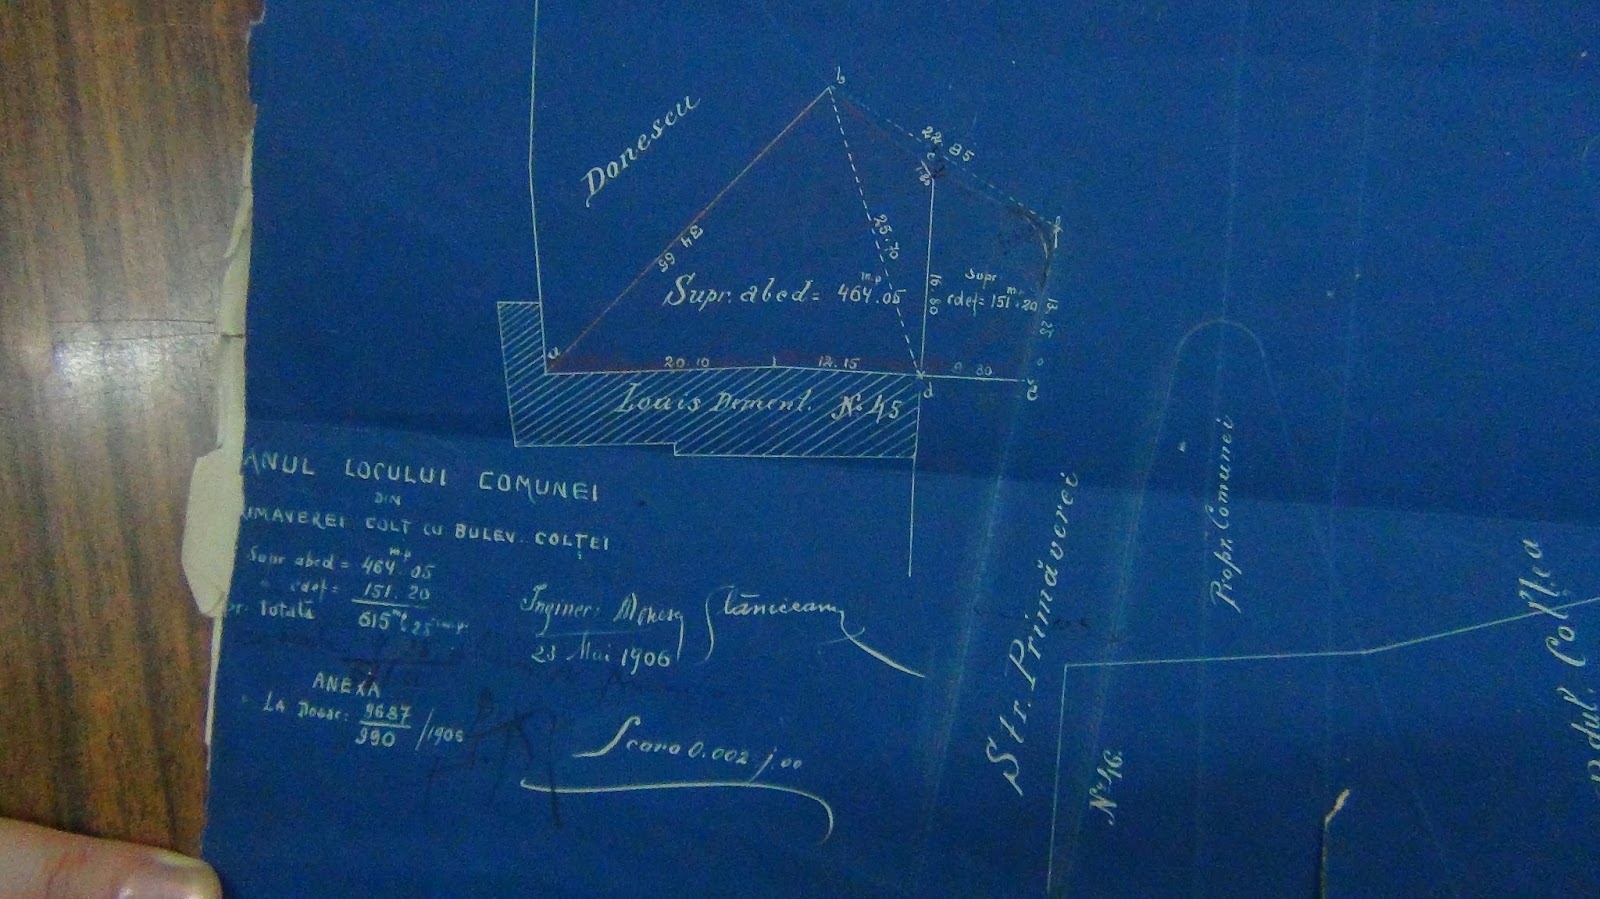 b
Donescu
22.85
c
7.80
34.65
25.70
Supr. abcd = 464.05 m.p
16.80
Supr
cdef = 151.20 m.p
13.25
a
20.10
12.15
9.30
d
Louis Dement. No 45
ANUL LOCULUI COMUNEI
DIN
IMAVEREI COLT CU BULEV. COLȚEI
Supr abcd = 464.05 m.p
" cdef = 151.20
pr. Totală 615 25 m.p
Inginer:
23 Mai 1906
ANEXA
LA Dosar: 9687/990/1906
Scara 0.002 j.00
Str. Primăverei
Propr. Comunei
No 46.
Bdul. Colțea